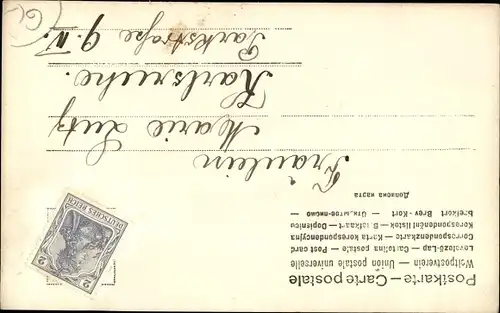 Postkarte — Carte postale
Weltpostverein — Union postale universelle
Levelező-Lap — Cartolina postale — Post card
Correspondenzkarte — Karta korespondencyjna
Korespondenční lístek — Briefkaart — Dopisnice
Brefkort — Brev-Kort — Открытое письмо
Дописна карта
DEUTSCHES REICH
2 2
Fräulein
Marie Lutz
Karlsruhe.
Parkstraße 9. IV.